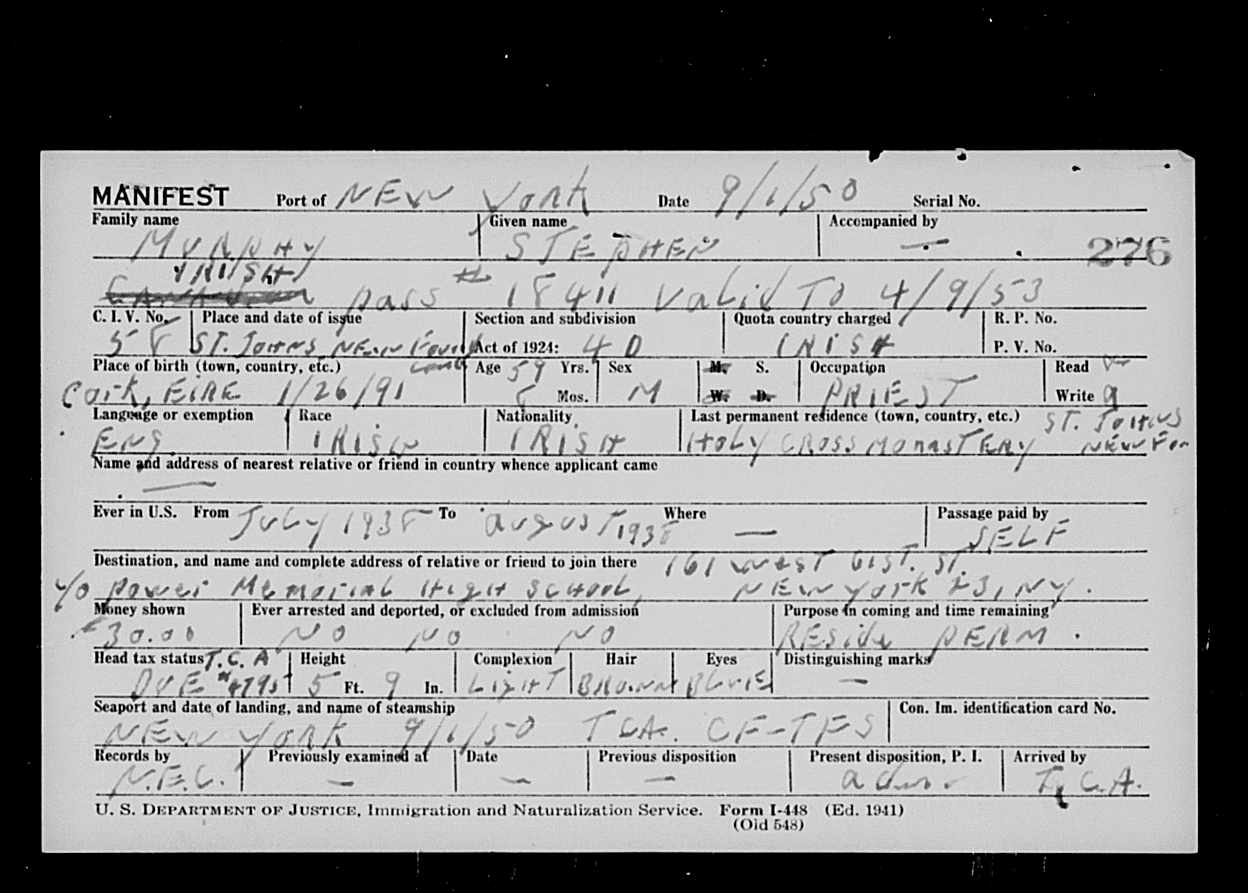 MANIFEST Port of NEW York Date 9/1/50 Serial No.
Family name Given name Accompanied by
MURPHY STEPHEN — 276
IRISH
CANADIAN pass # 18411 Valid To 4/9/53
C. I. V. No. Place and date of issue Section and subdivision Quota country charged R. P. No.
58 ST. JOHNS, NEW Found Act of 1924: 4 D IRISH P. V. No.
land
Place of birth (town, country, etc.) Age 59 Yrs. Sex M. S. Occupation Read
Cork, EIRE 1/26/91 Mos. M W. D. PRIEST Write
Language or exemption Race Nationality Last permanent residence (town, country, etc.) ST. JOHNS
ENG. IRISH IRISH HOLY CROSS MONASTERY NEW Fon
Name and address of nearest relative or friend in country whence applicant came
—
Ever in U.S. From JULY 1938 To august 1938 Where — Passage paid by
SELF
Destination, and name and complete address of relative or friend to join there 161 WEST 61ST. ST.
c/o power Memorial HIGH SCHOOL, NEW York 23, NY.
Money shown Ever arrested and deported, or excluded from admission Purpose in coming and time remaining
30.00 NO NO NO RESide PERM.
Head tax status T. C. A Height Complexion Hair Eyes Distinguishing marks
DUE 5 Ft. 9 In. LIGHT BROWN BLUE —
Seaport and date of landing, and name of steamship Con. Im. identification card No.
NEW York 9/1/50 TCA. CF-TFS
Records by Previously examined at Date Previous disposition Present disposition, P. I. Arrived by
N.E.C. — — — adm. T. C. A.
U. S. DEPARTMENT OF JUSTICE, Immigration and Naturalization Service. Form I-448 (Ed. 1941)
(Old 548)